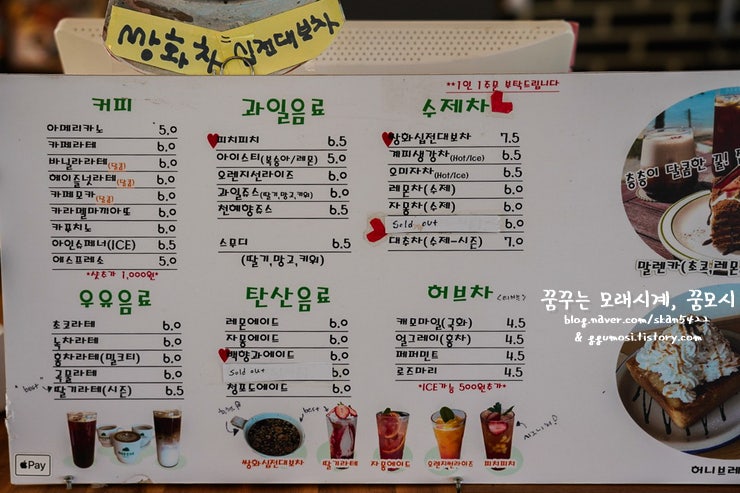 쌍화차 = 십전대보차
**1인 1주문 부탁드립니다
커피
아메리카노 5.0
카페라테 6.0
바닐라라테(달콤) 6.0
헤이즐넛라테(달콤) 6.0
카페모카(달콤) 6.0
카라멜마끼아또 6.0
카푸치노 6.0
아인슈페너(ICE) 6.5
에스프레소 5.0
*샷추가 1,000원*
과일음료
피치피치 6.5
아이스티(복숭아/레몬) 5.0
오렌지선라이즈 6.5
과일쥬스(딸기,망고,키위) 6.5
천혜향쥬스 6.5
스무디 6.5
(딸기,망고,키위)
수제차
쌍화십전대보차 7.5
계피생강차(Hot/Ice) 6.5
오미자차(Hot/Ice) 6.5
레몬차(수제) 6.0
자몽차(수제) 6.0
Sold out 6.0
대추차(수제-시즌) 7.0
우유음료
초코라테 6.0
녹차라테 6.0
홍차라테(밀크티) 6.0
곡물라테 6.0
best
딸기라테(시즌) 6.5
탄산음료
레몬에이드 6.0
자몽에이드 6.0
백향과에이드 6.0
Sold out 6.0
청포도에이드 6.0
허브차
캐모마일(국화) 4.5
얼그레이(홍차) 4.5
페퍼민트 4.5
로즈마리 4.5
*ICE가능 500원추가*
층층이 달콤한 꿀!
말렌카(초코,레몬
허니브레
꿈꾸는 모래시계, 꿈모시
blog.naver.com/skan5422
& ggumosi.tistory.com
Pay
best
쌍화십전대보차
딸기라테
자몽에이드
오렌지선라이즈
피치피치